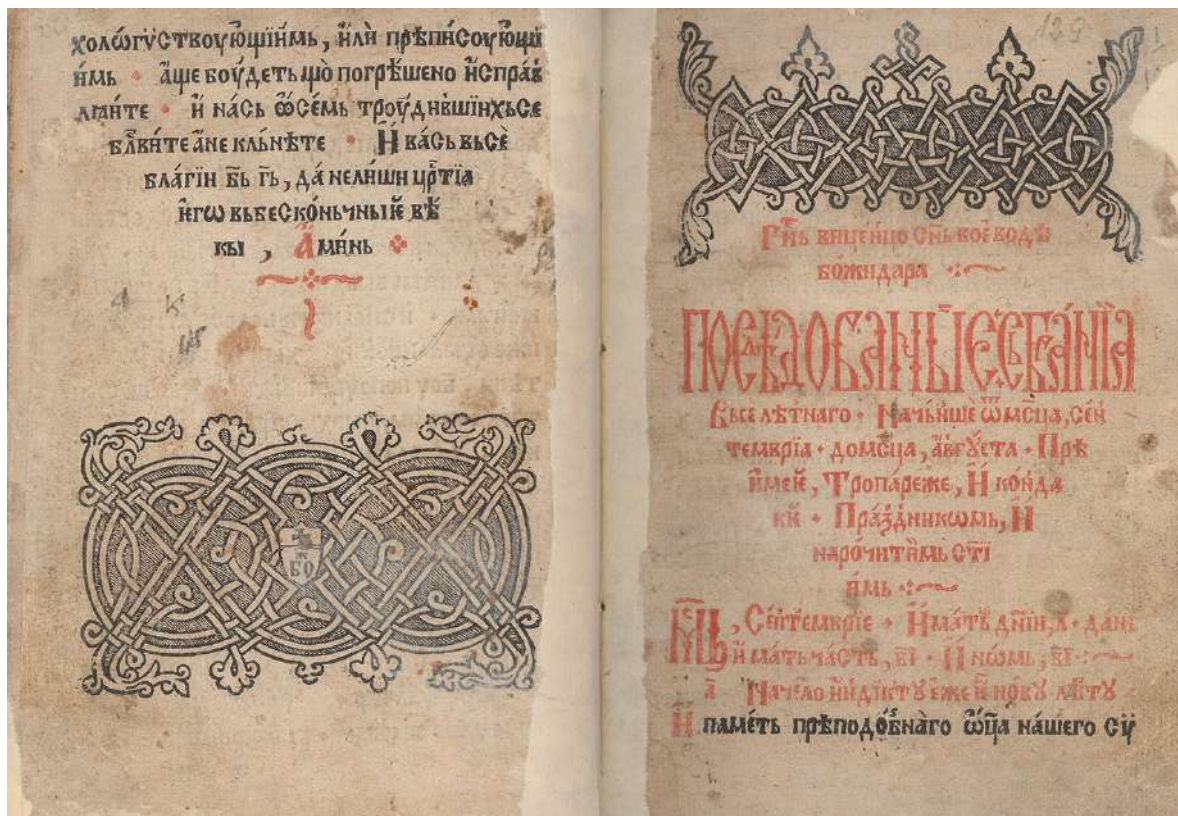 холѡгѵствоуюⷳщїимь, и҆лѝ прѣпи́соуюⷳщї
и҆мь · а҆ще боу́деть що̀ погрѣ́шено и҆справ
лꙗи́те · и҆ на́сь ѡ҆ се́мь троу́дившїихь се
блⷭ҇ви́те а не кльнѣ́те · И҆ ва́сь вьсѐ
бла́гїи бь҃ гь҃, да́ не ли́ши црⷭ҇тїа
и҆его вь беско́ньчныи҆е вѣ́
кы , А҆ми́нь
БО
129
вицен҆цо сн҃ь вое҆водѣ
божидара
ПОСЛѢДОВАНЫЕ СЬБРАНЇА
Вьселѣ́тнаго · Начь́нше ѿ мсⷭ҇ца, сеⷩ҇
темврїа · до мсⷭ҇ца, а҆вгꙋ́ста · Прѣ
и҆меи҆е, Тропаре же, И҆ ко́нда
ки · Пра́здникѡмь, И҆
наро́читїимь ст҃ї
и҆мь
Мⷭ҇ць, Сеⷩ҇темврїе · И҆мать дн҃їи, л҃ · дань
и҆мать ча́сть, в҃і · И҆ но́щь, в҃і
а҃ Начело и҆ндїктꙋ е҆же и҆ но́вꙋ лѣ́тꙋ
И҆ паме́ть прѣподо́бнаго ѡ҆ц҃а на́шего сѵ